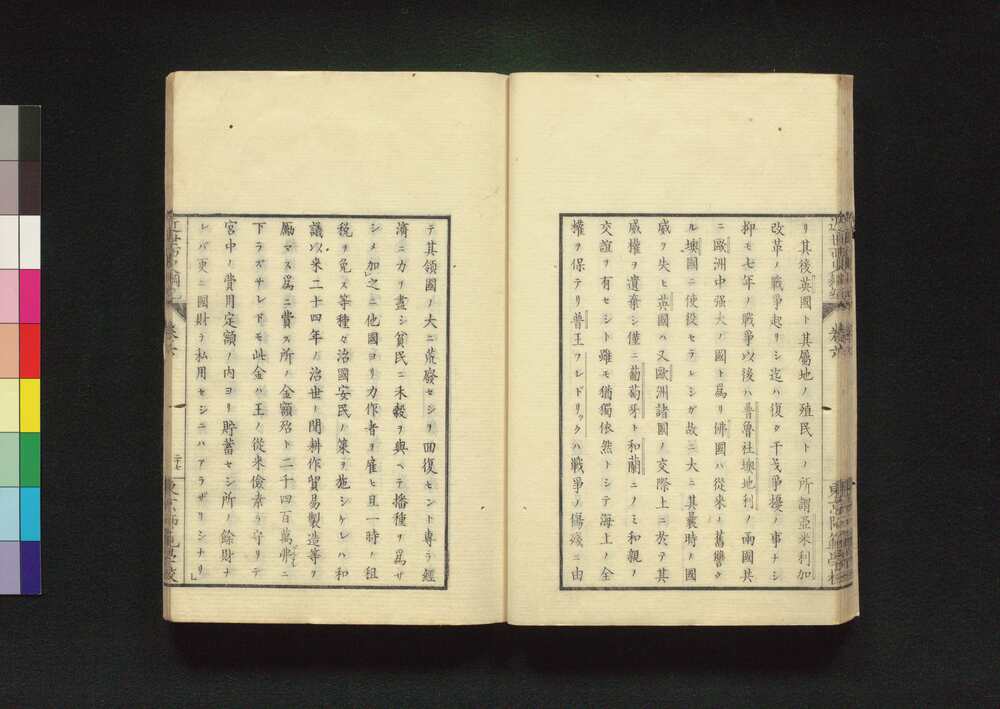 リ其後英國ト其屬地ノ殖民トノ所謂亞米利加
改革ノ戰爭起リシ迄ハ復タ干戈爭擾ノ事ナシ
抑モ七年ノ戰爭以後ハ普魯社墺地利ノ兩國共
ニ歐洲中强大ノ國ト爲リ佛國ハ從來ノ舊讐タ
ル墺國ニ使役セラレシガ故ニ大ニ其曩時ノ國
威ヲ失ヒ英國ハ又歐洲諸國ノ交際上ニ於テ其
威權ヲ遺棄シ僅ニ葡萄牙ト和蘭ニノミ和親ノ
交誼ヲ有セシト雖モ猶獨依然トシテ海上ノ全
權ヲ保テリ普王フレドリックハ戰爭ノ傷殘ニ由
テ其領國ノ大ニ荒廢セシヲ回復セント專ラ經
濟ニ力ヲ盡シ貧民ニ米穀ヲ與ヘテ播種ヲ爲サ
シメ加之ニ他國ヨリ力作者ヲ雇ヒ且一時ノ租
稅ヲ免ス等種々治國安民ノ策ヲ施シケレハ和
議以来二十四年ノ治世ノ間耕作貿易製造等ヲ
勵マス爲ニ費ス所ノ金額殆ト二千四百萬弗ニ
下ラズサレドモ此金ハ王ノ從来儉素ヲ守リテ
宮中ノ費用定額ノ内ヨリ貯蓄セシ所ノ餘財ナ
レバ更ニ國財ヲ私用セシニハアラザリシナリ」
卷六
二十七